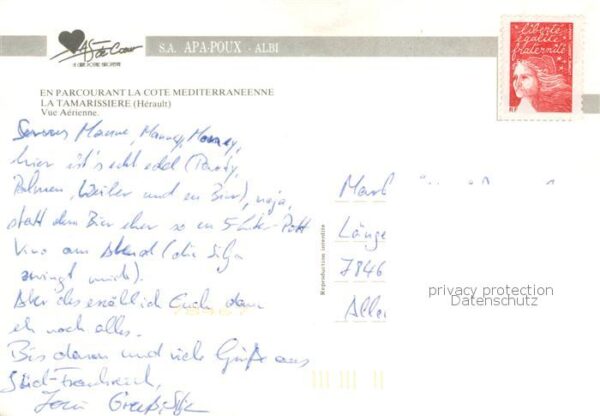 As de Coeur
S.A. APA-POUX - ALBI
liberté
égalité
fraternité
RF
EN PARCOURANT LA COTE MEDITERRANEENNE
LA TAMARISSIERE (Hérault)
Vue Aérienne.
Servus Manne,
hier ist's echt edel (Party,
Palmen, Weiber und en Bier), naja,
statt dem Bier eher so en 5 Liter Pott
Vino am Abend (die Silja
zwingt mich).
Aber des erzähl ich Euch dann
eh noch alles.
Bis dann und viele Grüße aus
Süd-Frankreich,
Länge
7846
Reproduction interdite
privacy protection
Datenschutz